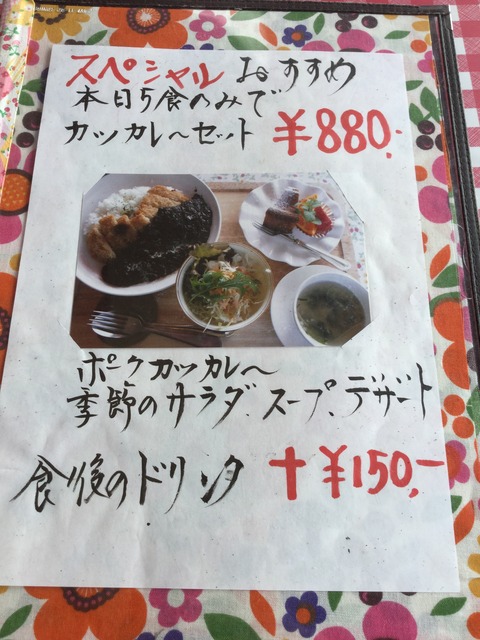 スペシャル おすすめ
本日5食のみで
カツカレ～セット ¥880,-
ポークカツカレ～
季節のサラダ、スープ、デザート
食後のドリンク +¥150,-